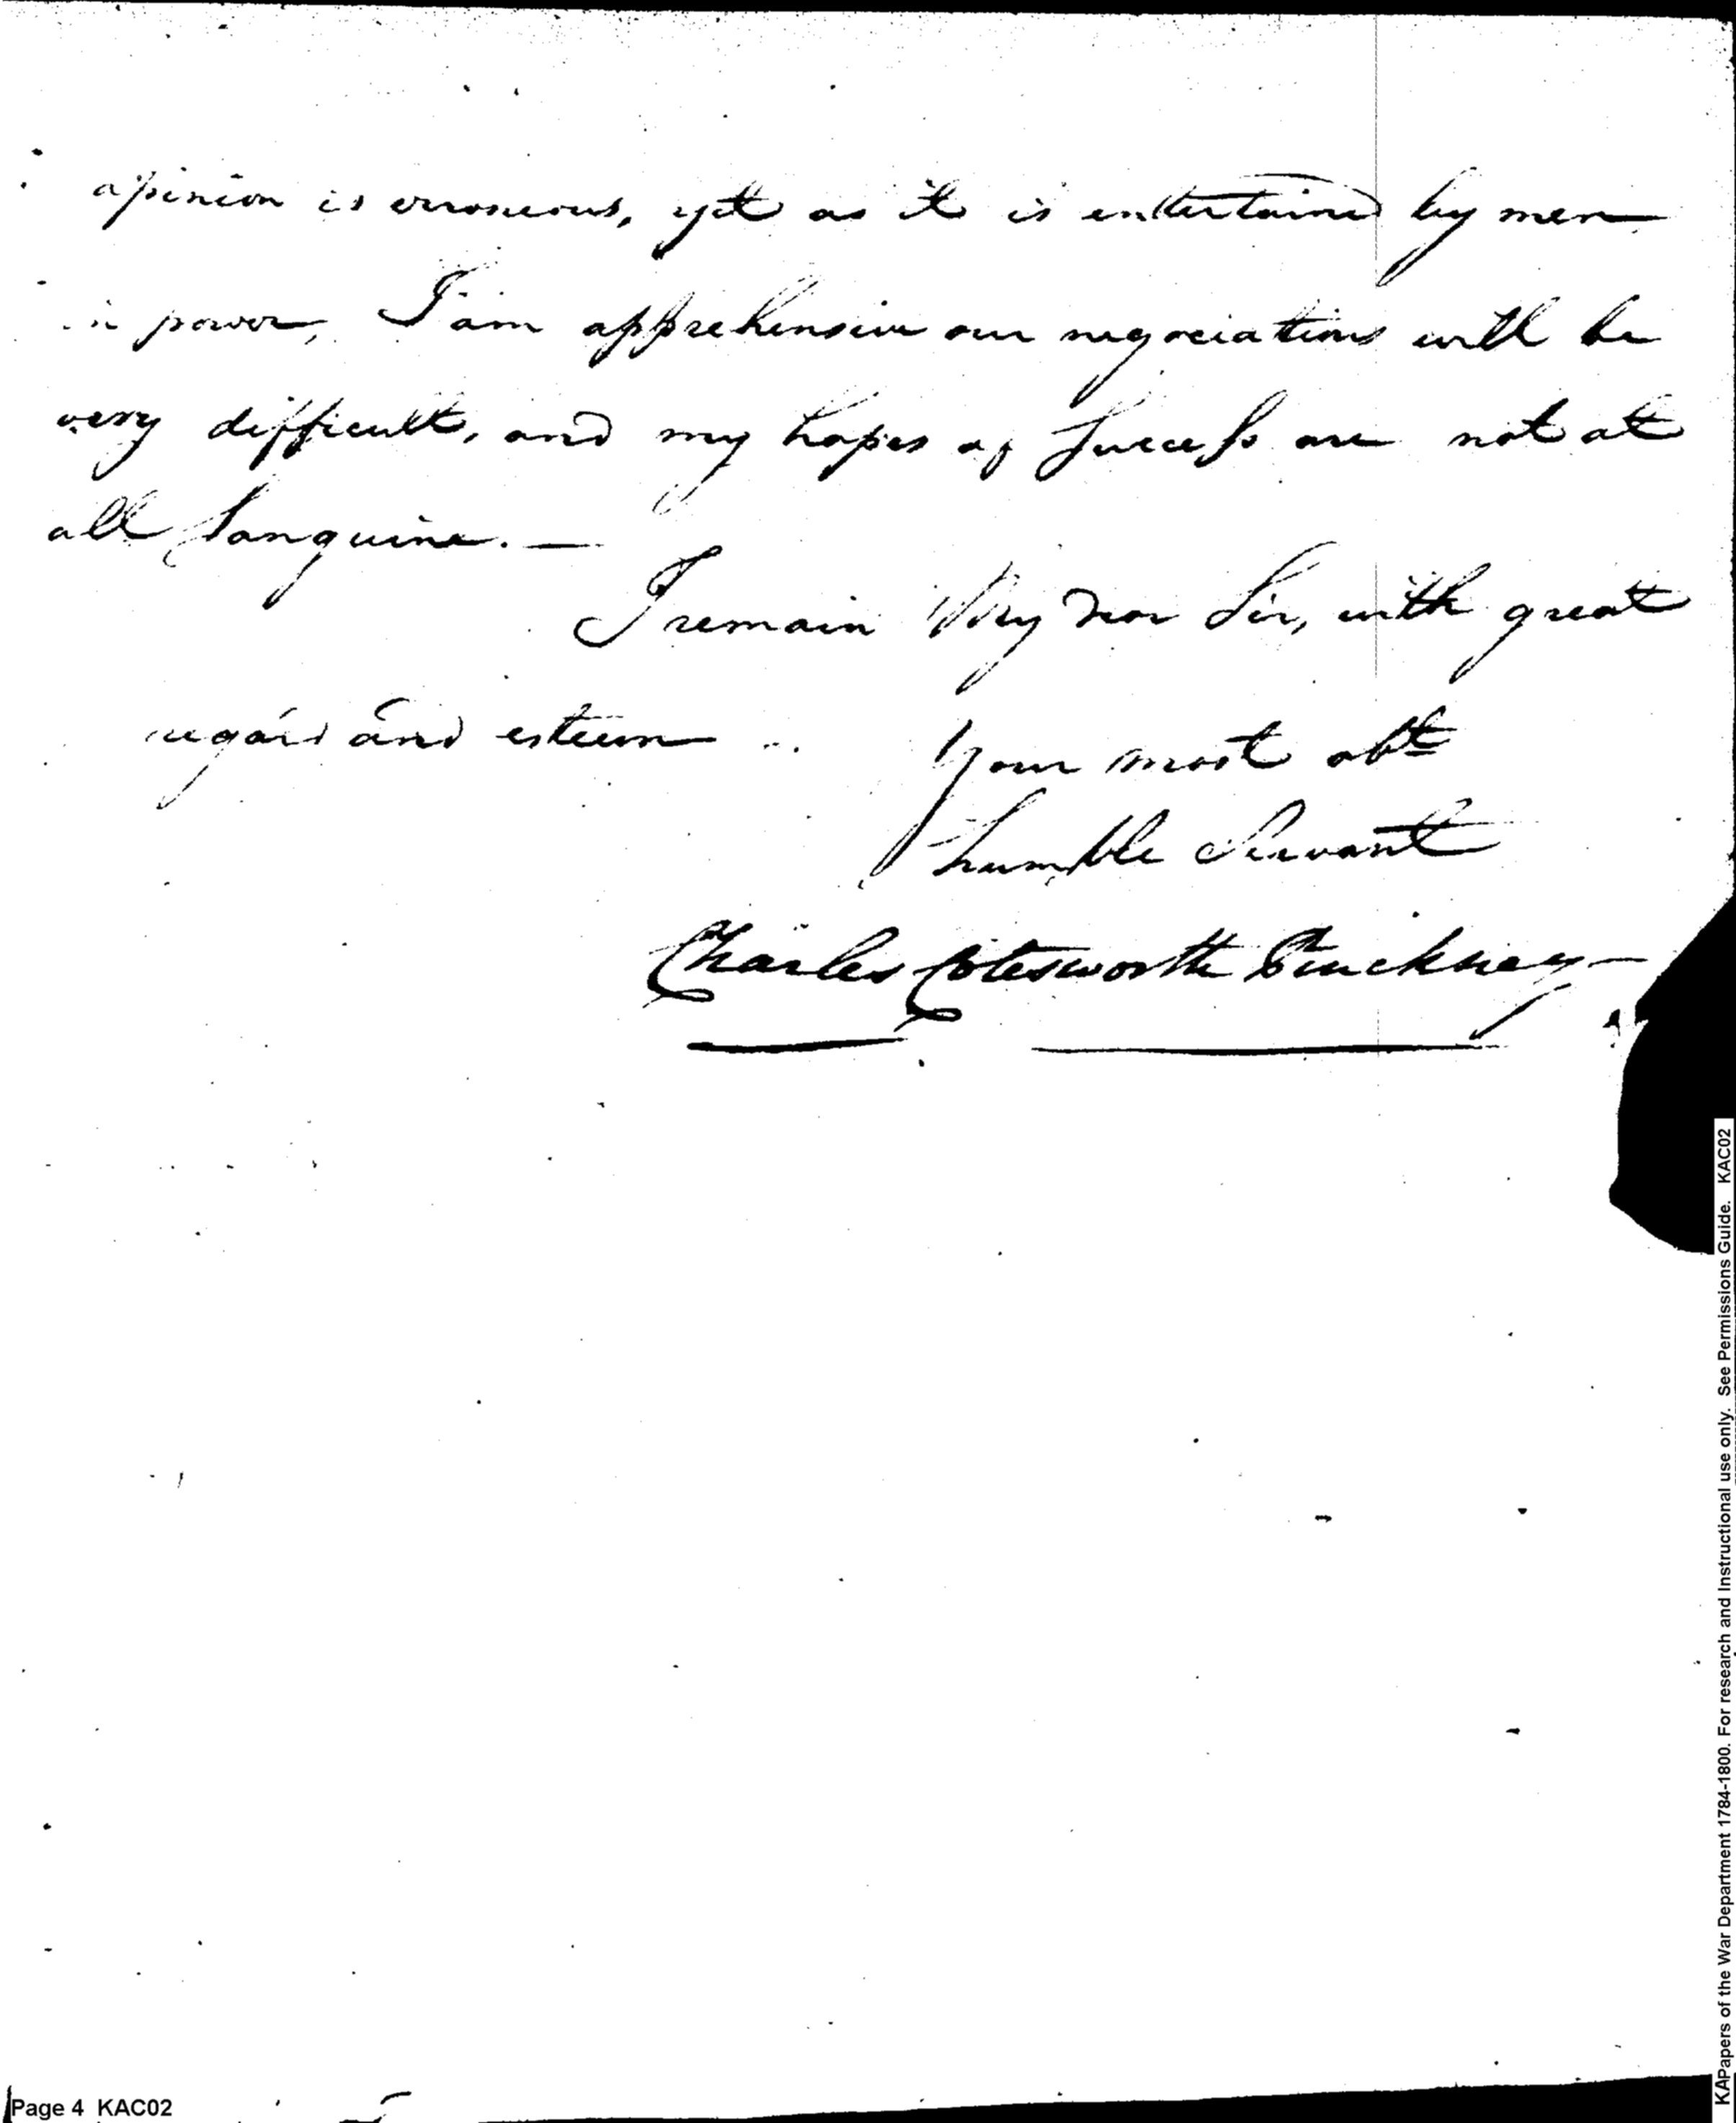 opinion is erroneous, yet as it is entertained by men
in power, I am apprehensive our negociations will be
very difficult, and my hopes of Success are not at
all Sanguine. —
I remain My dear Sir, with great
regard and esteem
Your most obt
humble Servant
Charles Cotesworth Pinckney —
Page 4 KAC02
KAPapers of the War Department 1784-1800. For research and Instructional use only. See Permissions Guide. KAC02